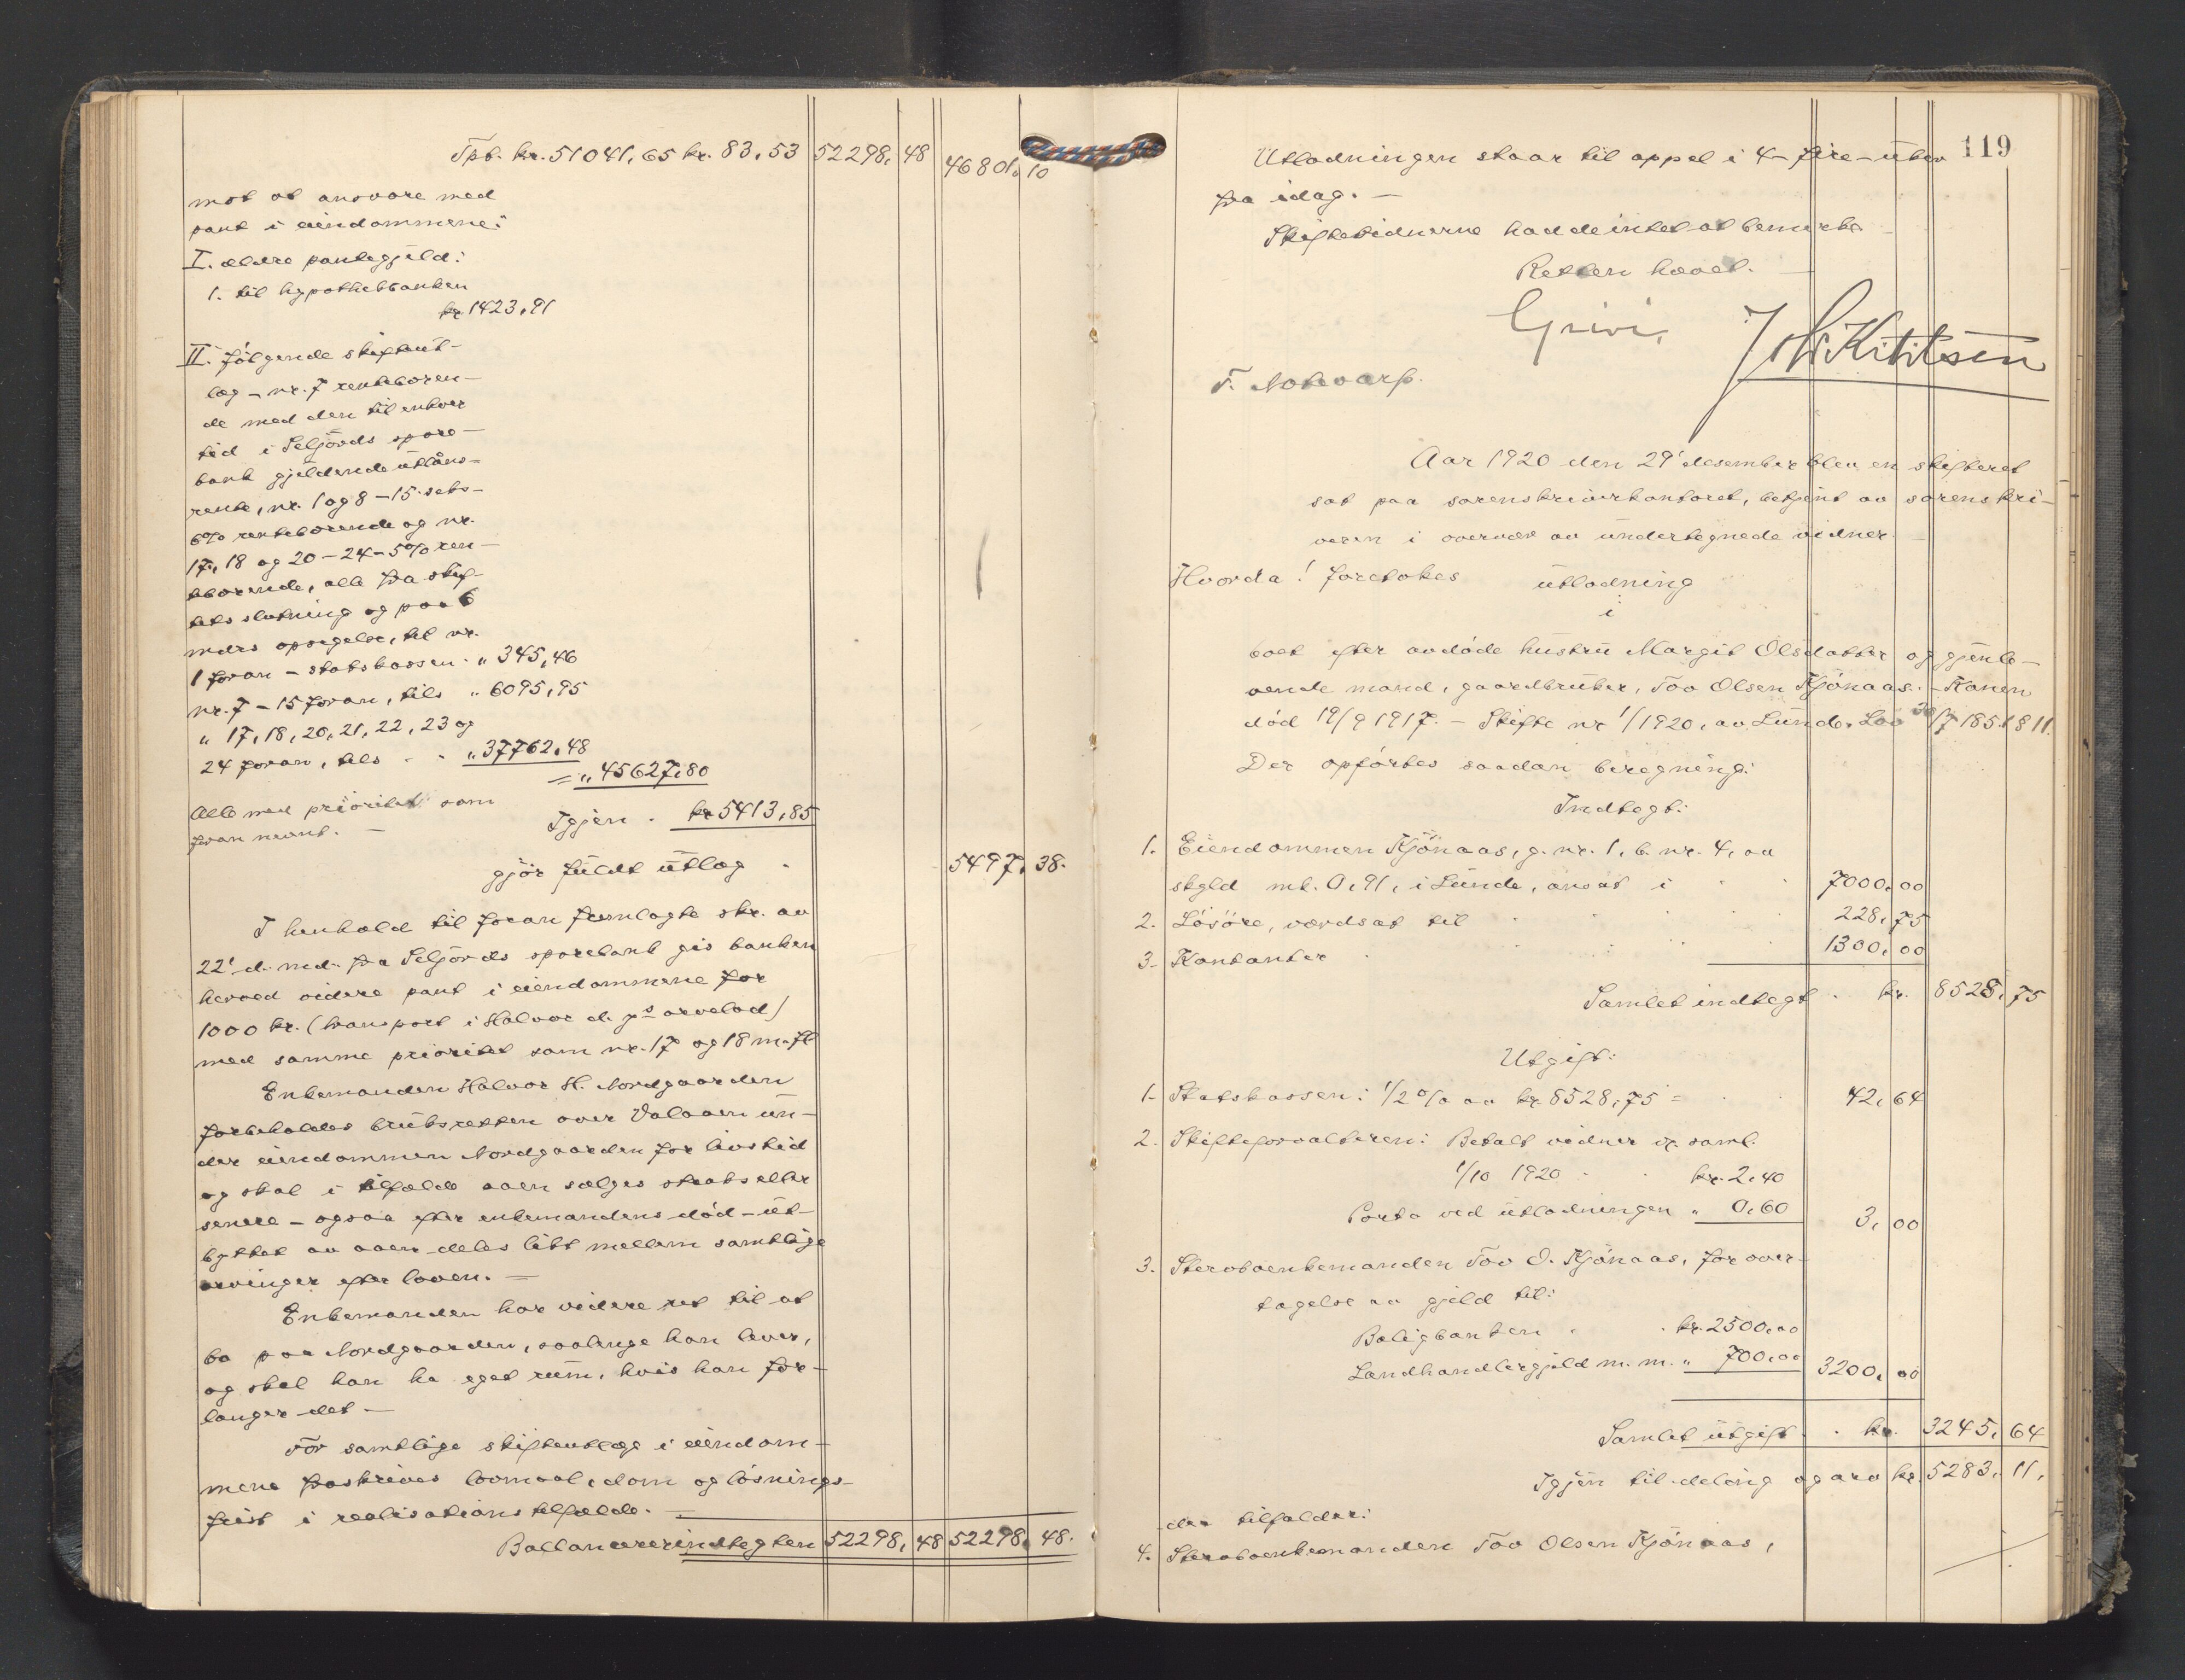 Tpt. kr. 51041,65 kr. 83,53 52298,48 46801,10
mot at ansvare med
pant i eiendommene:
I. ældre pantegjeld:
1. til hypothekbanken
kr 1423,91
II. følgende skifteut-
læg – nr. 7 renteboren-
de med den til enhver
tid i Seljords spare-
bank gjeldende utlåns-
rente, nr. 1 og 8 – 15. seks-
6% renteborende og nr.
17, 18 og 20 – 24 – 5% ren-
teborende, alle fra skif-
tets slutning og paa 6
mdrs opsigelse, til nr.
1 foran – statskassen. " 345,46
nr. 7 – 15 foran, tils " 6095,95
" 17, 18, 20, 21, 22, 23 og
24 foran, tils " 37762,48
= " 45627,80
Alle med prioritet som
foran nevnt. –
Igjen . kr 5413,85
gjør fuldt utlæg . 5497,38.
I henhold til foran fremlagte skr. av
22' d. md. fra Seljords sparebank gis banken
herved videre pant i eiendommene for
1000 kr. (transport i Halvor d. y.s arvelod)
med samme prioritet som nr. 17 og 18 m. fl.
Enkemanden Halvor H. Nordgaarden
forbeholdes bruksretten over Valaaen un-
der eiendommen Nordgaarden for livstid
og skal i tilfælde aaen sælges straks eller
senere – ogsaa efter enkemandens död – ut-
byttet av aaen deles likt mellem samtlige
arvinger efter loven. –
Enkemanden har videre ret til at
bo paa Nordgaarden, saalænge han lever,
og skal han ha eget rum, hvis han for-
langer det –
For samtlige skifteutlæg i eiendom-
mene fraskrives lovmaal, dom og løsnings-
frist i realisationstilfælde. –
Ballancerer indtegten 52298,48 52298,48.
119
Utlodningen staar til appel i 4 – fire – uker
fra idag. –
Skiftevidnerne hadde intet at bemerke –
Retten hævet. –
T. Notevarp.
Aar 1920 den 29' desember blev en skifteret
sat paa sorenskriverkontoret, betjent av sorenskri-
veren i overvær av undertegnede vidner.
Hvorda! foretokes utlodning
i
boet efter avdøde hustru Margit Olsdatter og gjenle-
vende mand, gaardbruker, Tov Olsen Kjönaas. – Konen
död 19/9 1917. – Skifte nr 1/1920, av Lunde. Lov 30/7 1851 § 11.
Der opförtes saadan beregning:
Indtegt:
1. Eiendommen Kjönaas, g. nr. 1, b. nr. 4, av
skyld mk. 0,91, i Lunde, ansat i . . 7000,00
2. Lösöre, værdsat til . . . 228,75
3. Kontanter . . . 1300,00
Samlet indtegt . kr. 8528,75
Utgift:
1. Statskassen: 1/2% av kr 8528,75 = . . 42,64
2. Skifteforvalteren: Betalt vidner v. saml.
1/10 1920 . . kr. 2,40
Porto ved utlodningen " 0,60 3,00
3. Stervboenkemanden Tov O. Kjönaas, for over-
tagelse av gjeld til:
Boligbanken . . kr. 2500,00
Landhandlergjeld m. m. " 700,00 3200,00
Samlet utgift . kr. 3245,64
Igjen til deling og arv kr. 5283,11,
der tilfalder:
4. Stervboenkemanden Tov Olsen Kjönaas,